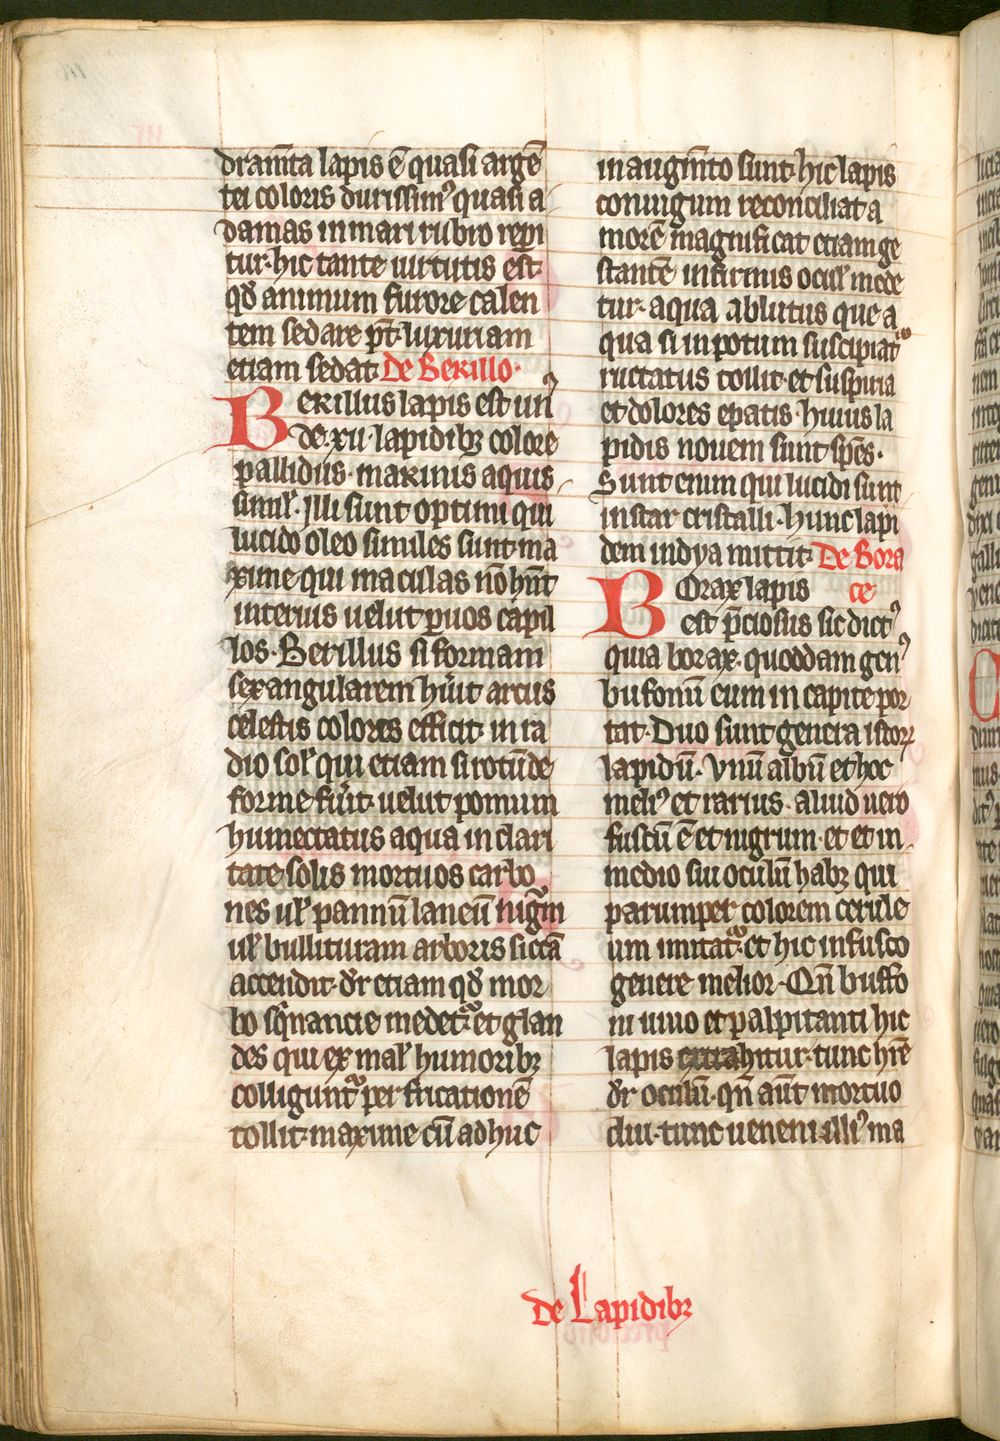 dramta lapis ē quasi argē
tei coloris durissimꝰ quasi a
damas in mari rubro repi
tur· hic tante uirtutis est·
qd̄ animum furore calen
tem sedare pt̄· luxuriam
etiam sedat· De Berillo·
Berillus lapis est unꝰ
de·xii·lapidibꝫ colore
pallidus· marinis aquis
simil̓· Illi sunt optimi qui
lucido oleo similes sunt· ma
xime qui maculas nō hn̄t
interius uelut puos capil
los· Berillus si formam
sexangularem hūit arcus
celestis colores efficit· in ra
dio sol̓ qui etiam si rotūde
forme fūit· uelut pomum
humectatus aqua in clari
tate solis mortuos carbo
nes ul̓ pannū laneū nigm
ul̓ bullituram arboris siccā
accendit· dr̄ etiam qd̄ mor
bo sqnancie medetᷣ et glan
des qui ex mal̓ humoribꝫ
colliguntᷣ per fricationē
tollit· maxime cū adhuc
in augmnto sunt· hic lapis
coniugum reconciliat a
morē magnificat etiam ge
stantē infirmis ocul̓ mede
tur· aqua ablutus que a
qua si in potum suscipiatᷣ
ructatus tollit· et suspiria
et dolores epatis· huius la
pidis nouem sunt spēs·
Sunt enim qui lucidi sunt
instar cristalli· hunc lapi
dem india mittit· De Bora
ce
Borax lapis
est pciosus sic dictꝰ
quia borax· quoddam genꝰ
bufonū eum in capite por
tat· Duo sunt genera istoꝝ
lapidū· Vnū albū et hoc
meliꝰ et rarius· aliud uero
fuscū ē et nigrum· et et in
medio sui oculū habꝫ qui
parumper colorem cerule
um imitatᷣ· et hic in fusco
genere melior· Qn̄ buffo
ni uiuo et palpitanti hic
lapis extrahitur· tunc hr̄e
dr̄ oculū· qn̄ aūt mortuo
diu· tunc ueneni illiꝰ ma
de Lapidibꝫ